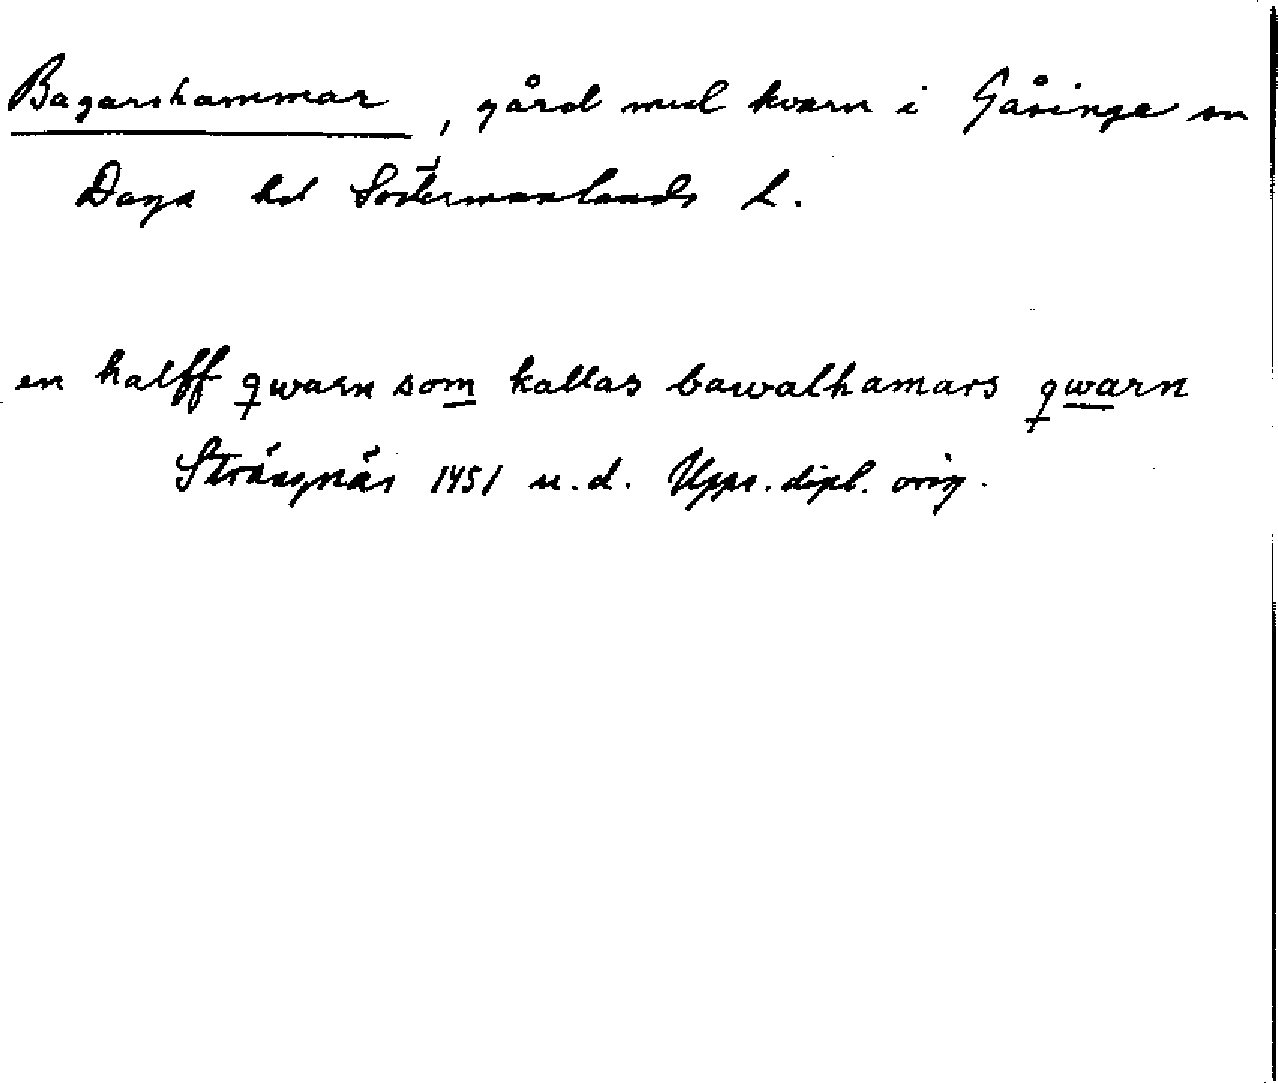 Bagarshammar, gård med kvarn i Gåsinge sn
Daga hd Södermanlands l.
en halff qwarn som kallas bawalhamars qwarn
Strängnäs 1451 u.d. Upps. dipl. orig.